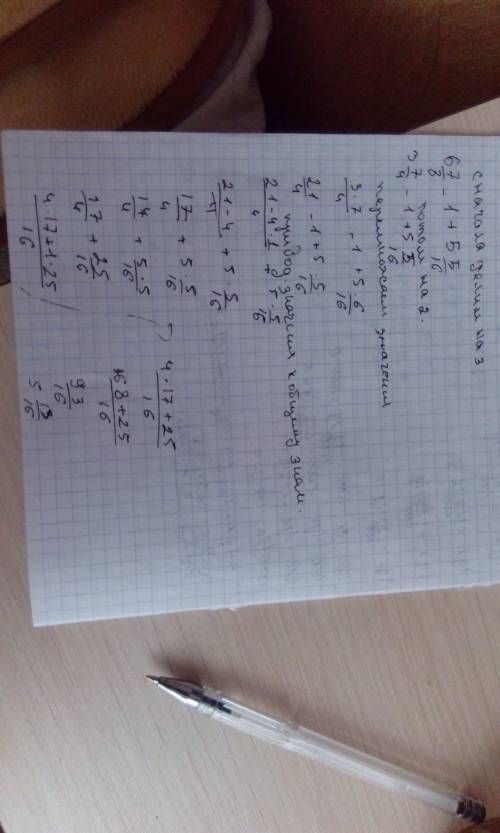 сначала делим на 3
6 7/8 - 1 + 5 5/16
потом на 2.
3 7/4 - 1 + 5 5/16
перемножаем значения
3·7/4 - 1 + 5·6/16
21/4 - 1 + 5·5/16
привод. значения к общему знам.
21-4·1/4 + 5·5/16
21-4/4 + 5·5/16
17/4 + 5·5/16
17/4 + 5·5/16
17/4 + 25/16
4·17+1·25/16
4·17+25/16
68+25/16
93/16
5 13/16